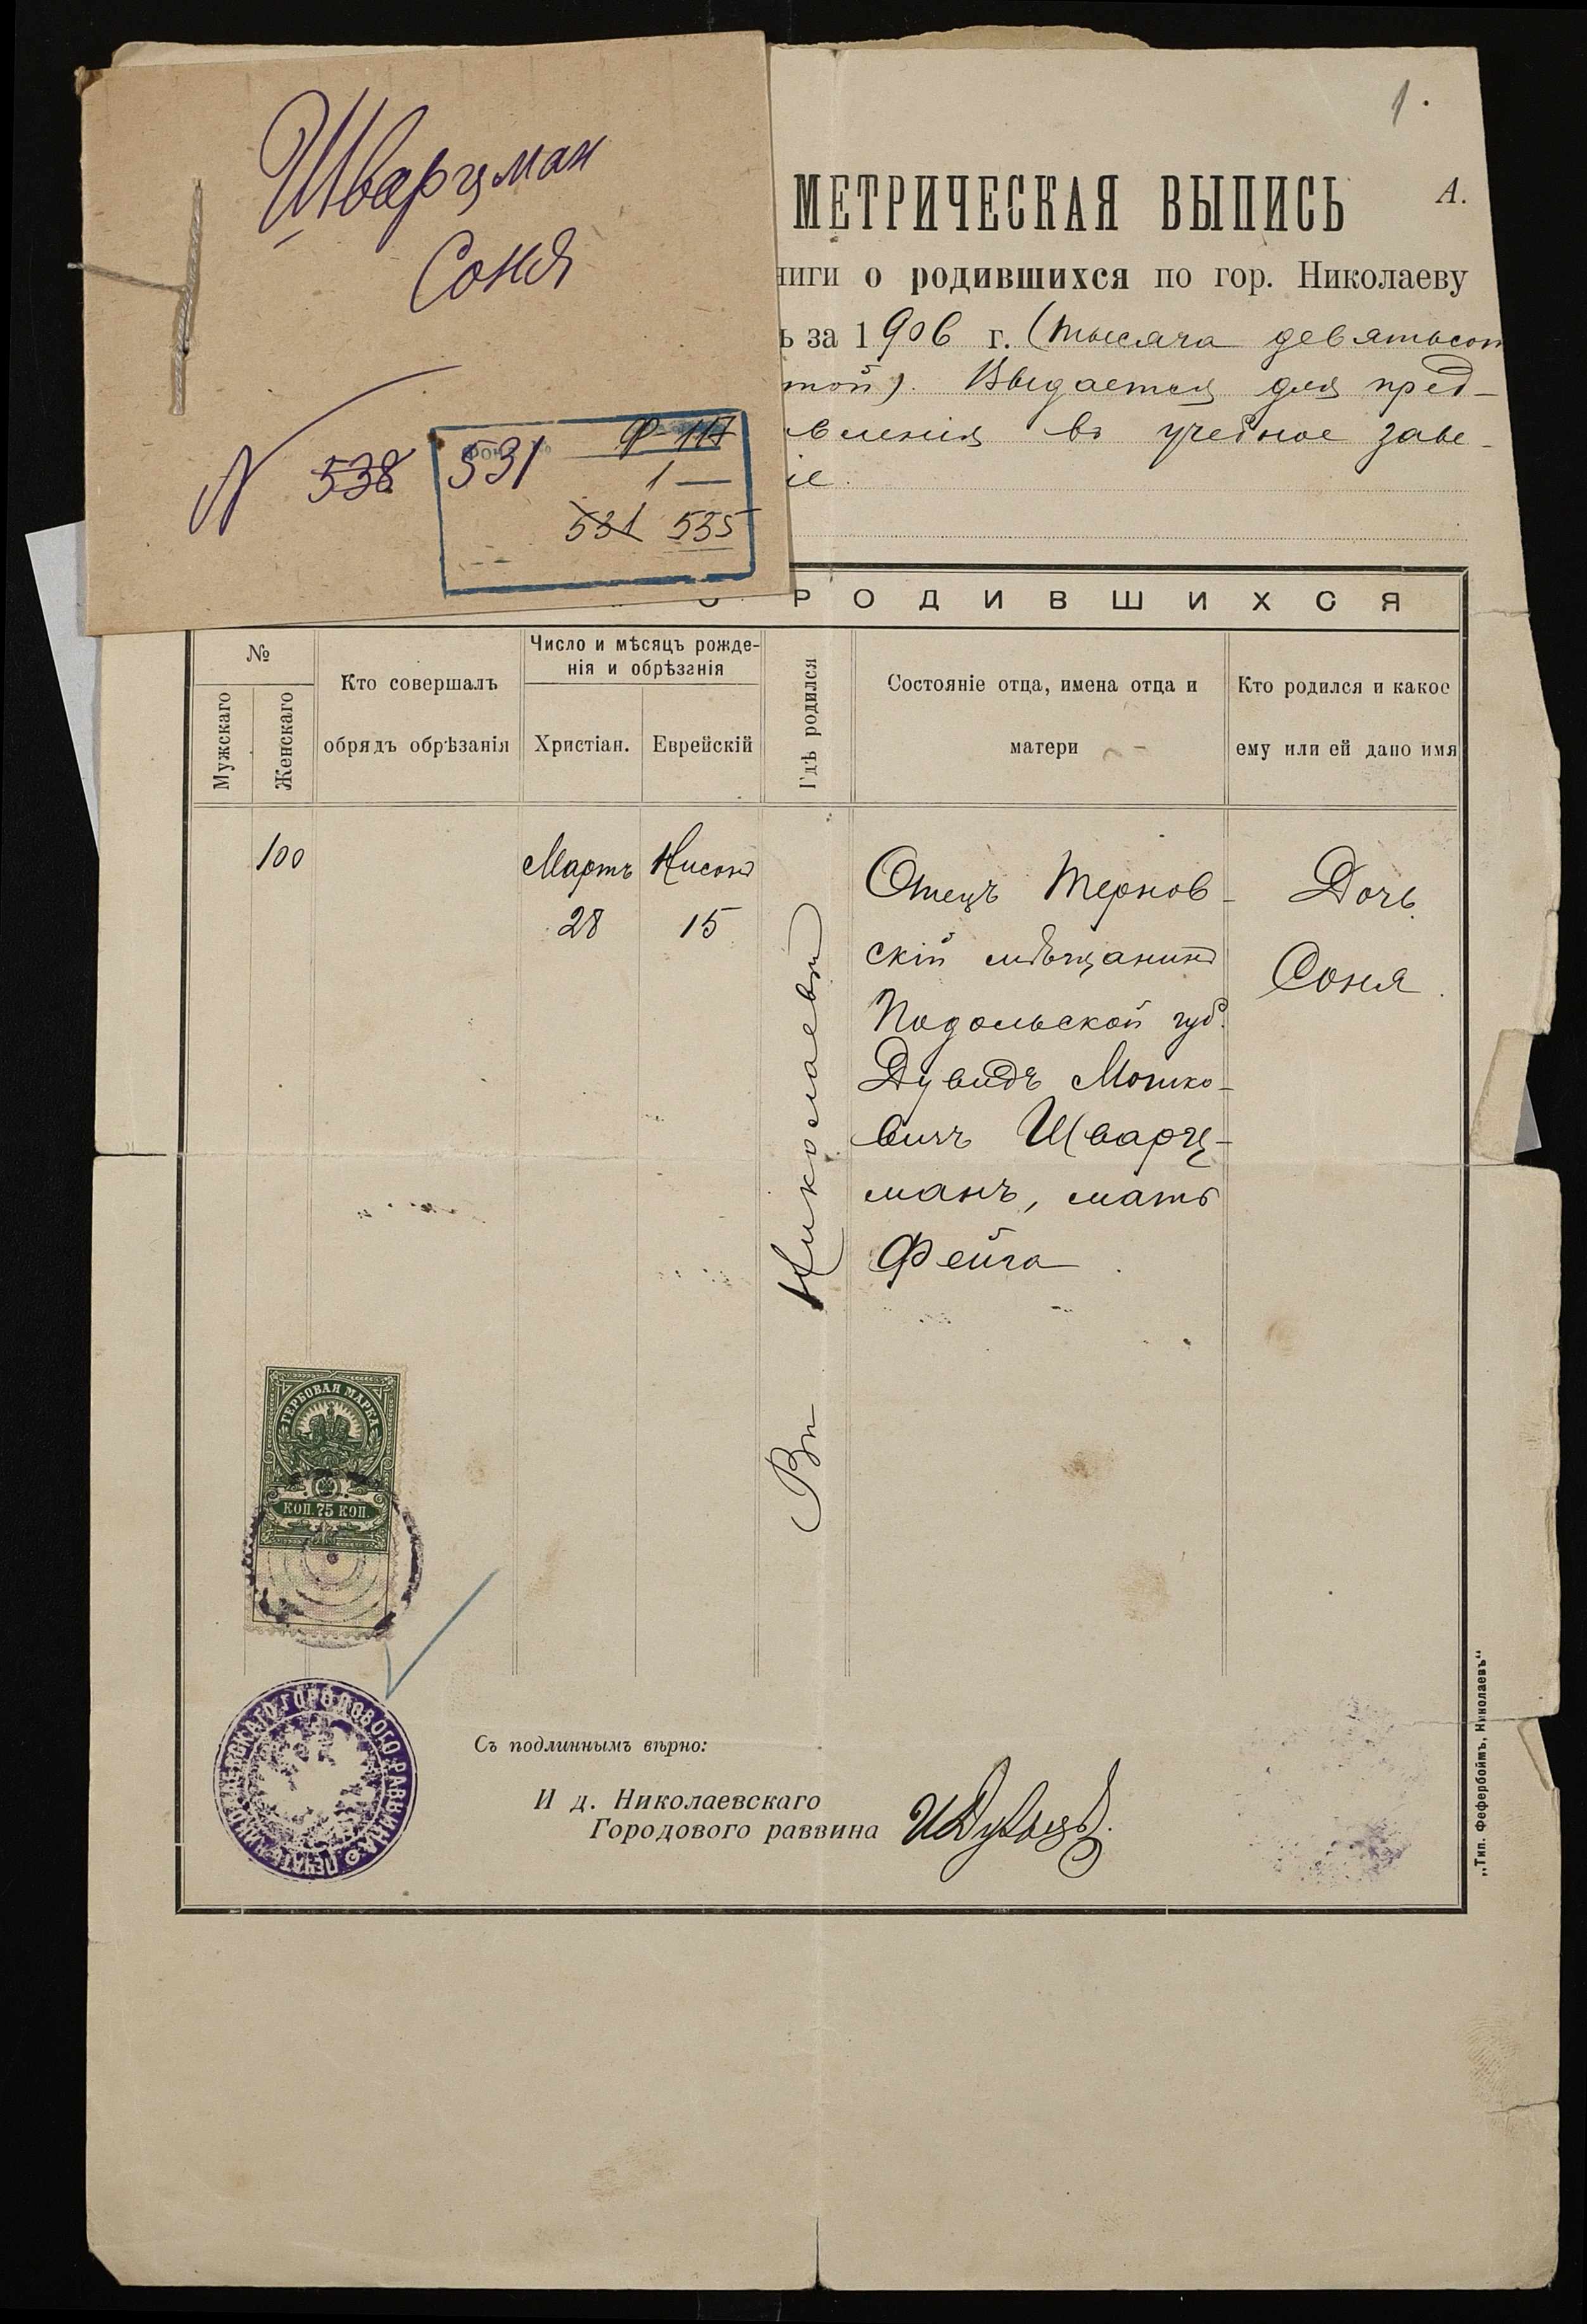 Шварцман
Соня
N 538
531
Ф-117
1 —
531 535
1.
МЕТРИЧЕСКАЯ ВЫПИСЬ
А.
ниги о родившихся по гор. Николаеву
ь за 1906 г. (тысяча девятьсот
той). Выдается для пред-
вленія въ учебное заве-
іе.
О РОДИВШИХСЯ
№
Мужскаго
Женскаго
Кто совершалъ
обрядъ обрѣзанія
Число и мѣсяцъ рожде-
нія и обрѣзанія
Христіан.
Еврейскій
Гдѣ родился
Состояніе отца, имена отца и
матери
Кто родился и какое
ему или ей дано имя
100
Мартъ
28
Нисонъ
15
Въ Николаевѣ
Отецъ Тернов-
скій мѣщанинъ
Подольской губ.
Дувидъ Мошко-
вичъ Шварц-
манъ, мать
Фейга
Дочь
Соня.
ГЕРБОВАЯ МАРКА
КОП. 75 КОП.
ПЕЧАТЬ НИКОЛАЕВСКАГО ГОРОДОВОГО РАВВИНА
Съ подлиннымъ вѣрно:
И д. Николаевскаго
Городового раввина
„Тип. Фефербоймъ, Николаевъ“